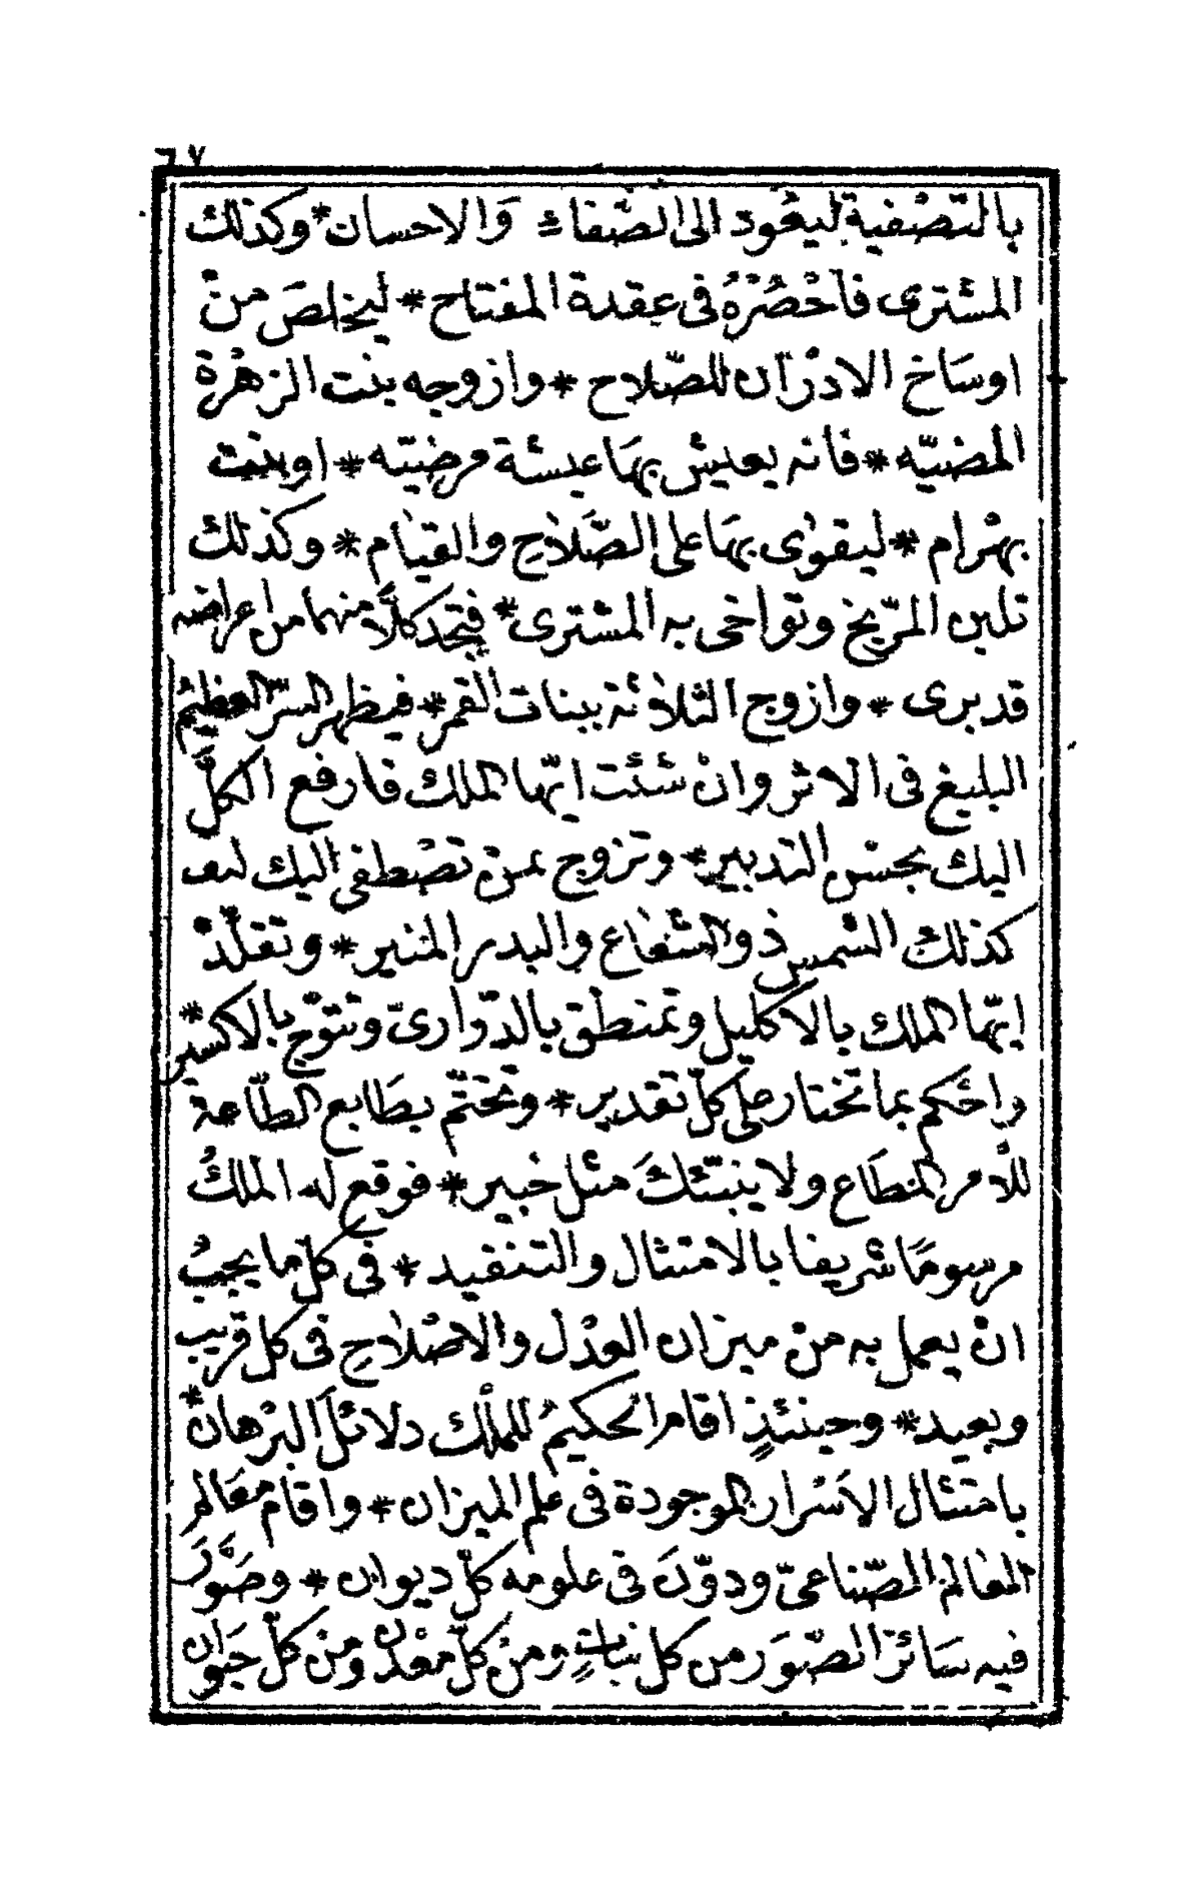 ٦٧
بالتّصْفية ليعُود الى الصّفاء وَالاحسان * وكذلك
المشْترى فاحْصُرْهُ فى عقدة المفتاح * ليخلصَ منْ
اوسَاخ الادْران للصّلاح * وازوجه بنت الزهْرة
المضيّه * فانه يعيش بهَا عيشة مرضيّه * اوبنت
بهْرام * ليقوٰى بهَا على الصّلَاح والقيام * وكذلك
تلين المرّيخ وتواخى به المشترى * فتجد كلاًّ منهما من اعراضه
قد برى * وازوج الثلاثة ببنات القمر * فيظهر السّر العظيْم
البليغ فى الاثر وانْ شئت ايّها الملك فارفع الكلَّ
اليك بحسْن التدبير * وتزوج بمنْ تصْطفى اليك
كذلك الشّمس ذو الشّعاع والبدر المنير * وتقلّدْ
ايّها الملك بالاكليل وتمنطق بالدّرارىّ وتتوّج بالاكسير *
واحْكم بما تختار على كلّ تقدير * وتختّم بطَابع الطّاعة
للأمر المطَاع ولا ينبّئكَ مثل خبير * فوقع له الملكُ
مرسومًا شريفا بالامتثال والتنفيد * فى كلّ ما يجبُ
انْ يعمل به منْ ميزان العدْل والاصْلاح فى كل قريب
وبعيد * وحينئذٍ اقام الحكيمُ للملَك دلائلَ البرْهانْ *
بامتثال الاَسْرار الموجودة فى علم الميزان * واقام معَالم
المعالم الصّناعىّ ودوّنَ فى علومه كلّ ديوان * وصَوَّرَ
فيه سَائرَ الصّوَر من كل نباتٍ ومنْ كلّ معْدن ومنْ كلّ حَيوان